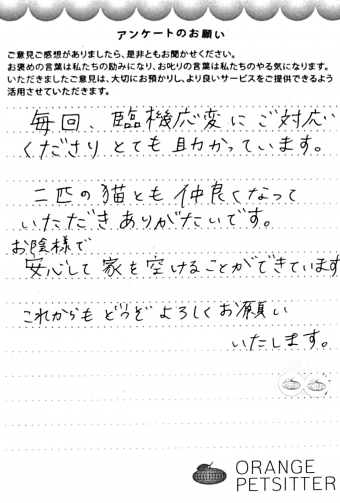 アンケートのお願い
ご意見ご感想がありましたら、是非ともお聞かせください。
お褒めの言葉は私たちの励みになり、お叱りの言葉は私たちのやる気になります。
いただきましたご意見は、大切にお預かりし、より良いサービスをご提供できるよう
活用させていただきます。
毎回、臨機応変にご対応い
くださりとても助かっています。
二匹の猫とも仲良くなって
いただきありがたいです。
お陰様で
安心して家を空けることができています
これからもどうぞよろしくお願い
いたします。
ORANGE
PETSITTER